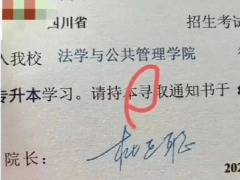 四川省 招生考试
人我校 法学与公共管理学院
专升本学习。请持本寻取通知书于
院长：